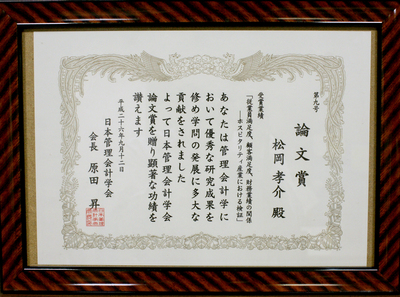 第九号
論文賞
松岡孝介 殿
受賞業績
「従業員満足度、顧客満足度、財務業績の関係
―ホスピタリティ産業における検証」
あなたは管理会計学に
おいて優秀な研究成果を
修め学問の発展に多大な
貢献をされました
よって日本管理会計学会
論文賞を贈り顕著な功績を
讃えます
平成二十六年九月十二日
日本管理会計学会
会長 原田 昇